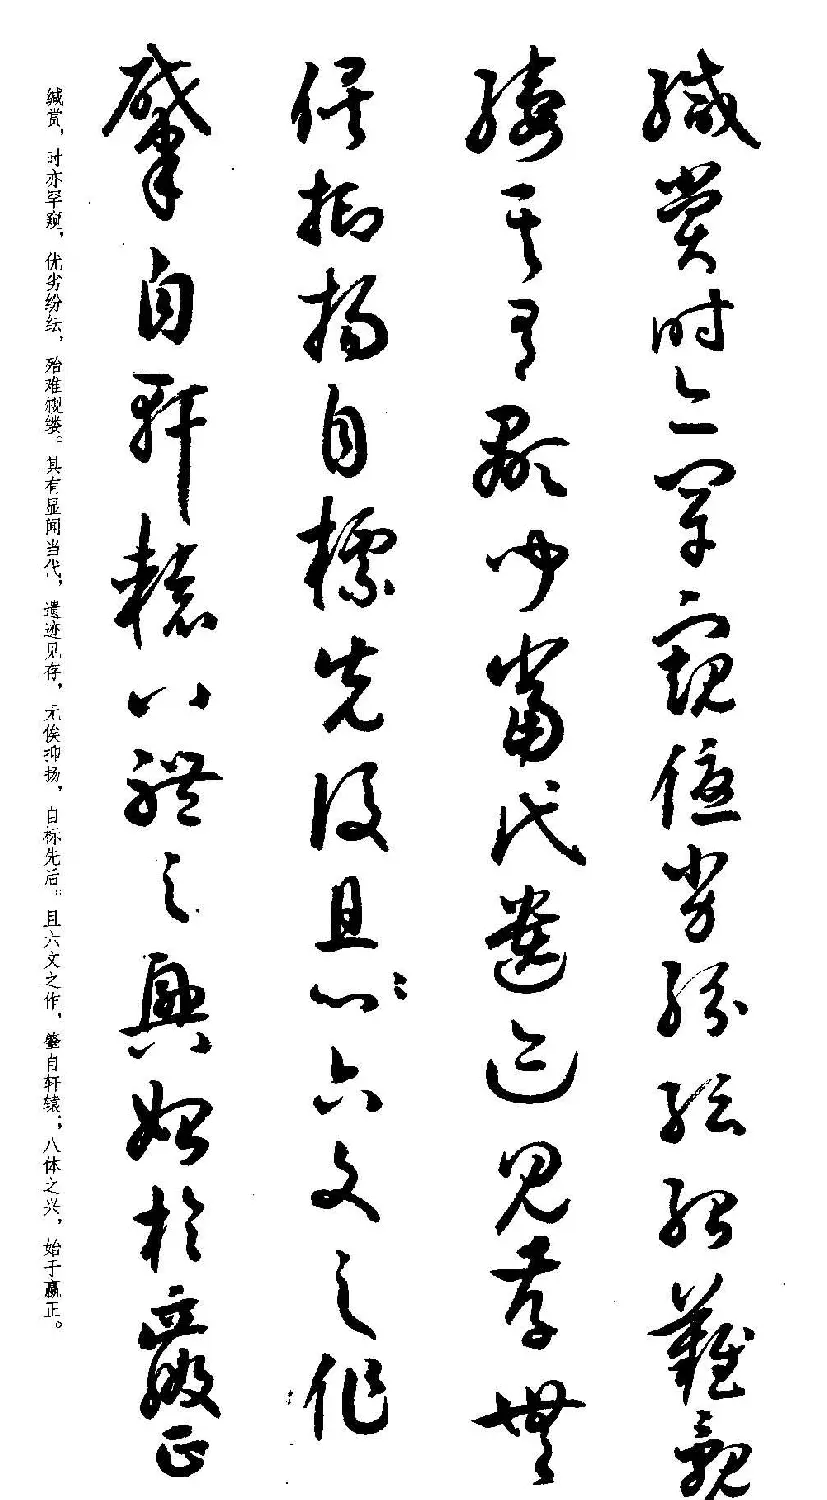 緘賞時亦罕窺優劣紛紜殆難覼
縷其有顯聞當代遺迹見存無
俟抑揚自標先後且六文之作
肇自軒轅八體之興始於嬴正
缄赏，时亦罕窥，优劣纷纭，殆难覼缕。其有显闻当代，遗迹见存，无俟抑扬，自标先后。且六文之作，肇自轩辕；八体之兴，始于嬴正。